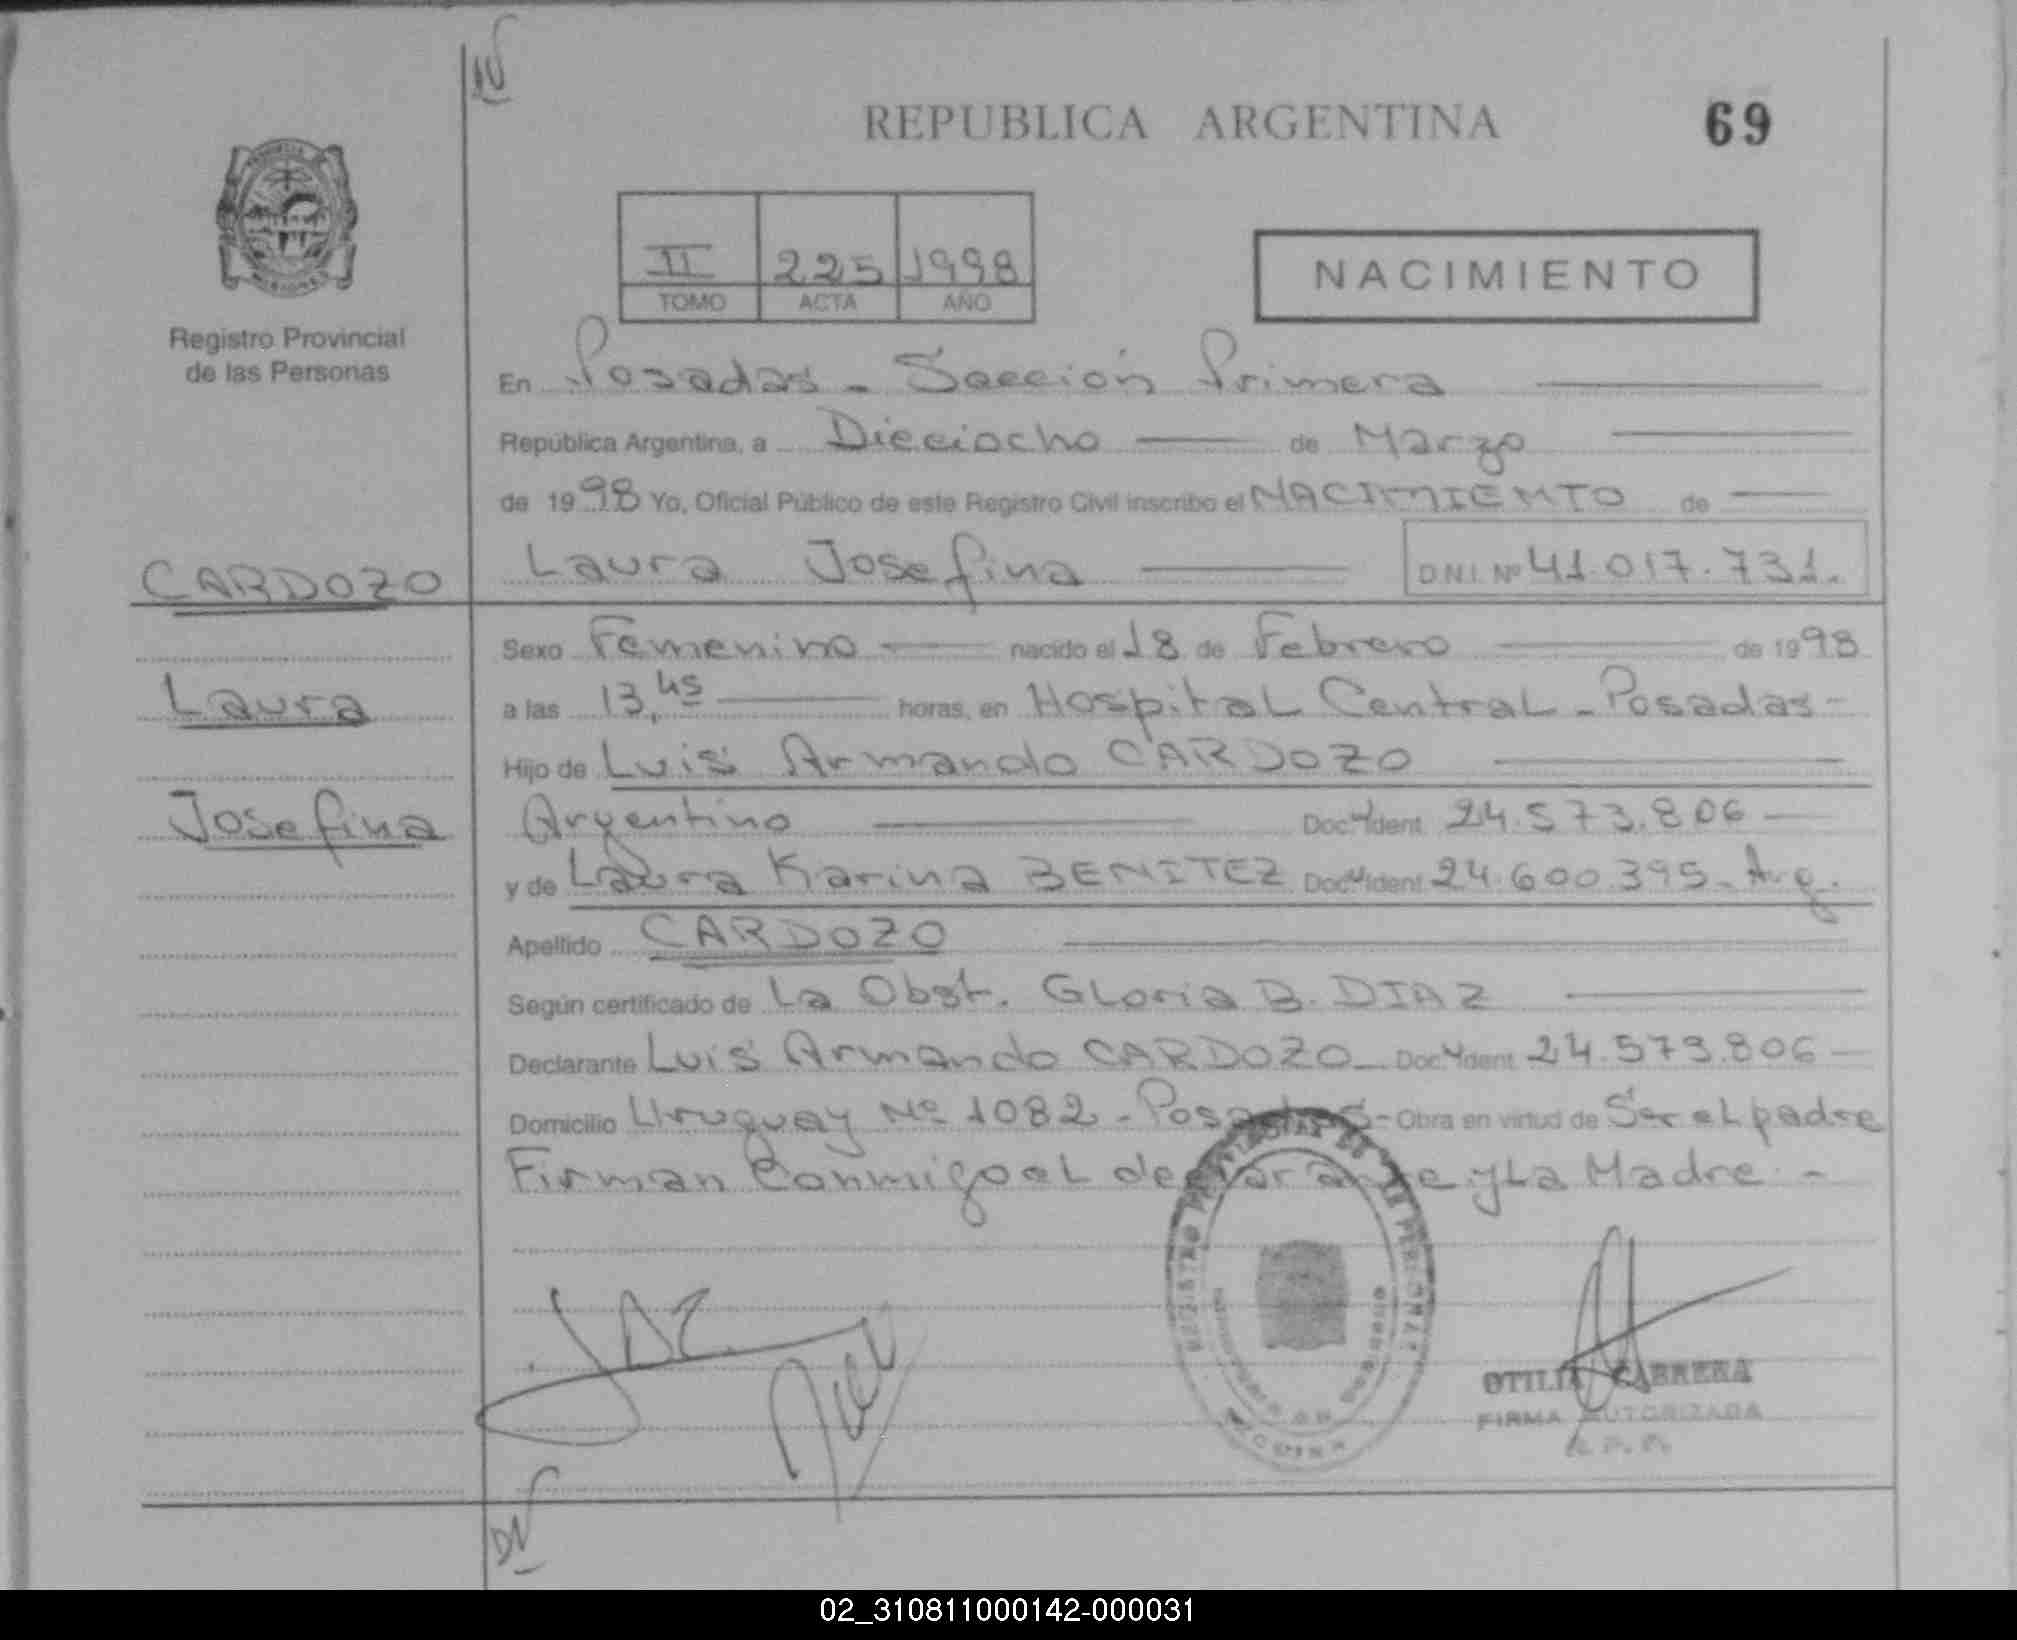 DV
REPUBLICA ARGENTINA 69
II 225 1998
TOMO ACTA AÑO
NACIMIENTO
Registro Provincial
de las Personas
En Posadas - Sección Primera
República Argentina, a Dieciocho de Marzo
de 1998 Yo, Oficial Público de este Registro Civil inscribo el NACIMIENTO de
CARDOZO
Laura Josefina D.N.I. Nº 41.017.731.
Laura
Josefina
Sexo Femenino nacido el 18 de Febrero de 1998
a las 13,45 horas, en Hospital Central - Posadas -
Hijo de Luis Armando CARDOZO
Argentino Doc. Ident. 24.573.806
y de Laura Karina BENITEZ Doc. Ident. 24.600.395 - Arg.
Apellido CARDOZO
Según certificado de La Obst. Gloria B. DIAZ
Declarante Luis Armando CARDOZO - Doc. Ident. 24.573.806
Domicilio Uruguay Nº 1082 - Posadas - Obra en virtud de Ser el padre
Firman Conmigo el declarante y La Madre. -
REGISTRO PROVINCIAL DE LAS PERSONAS
OTILIA CABRERA
FIRMA AUTORIZADA
R.P.P.
DV
02_310811000142-000031